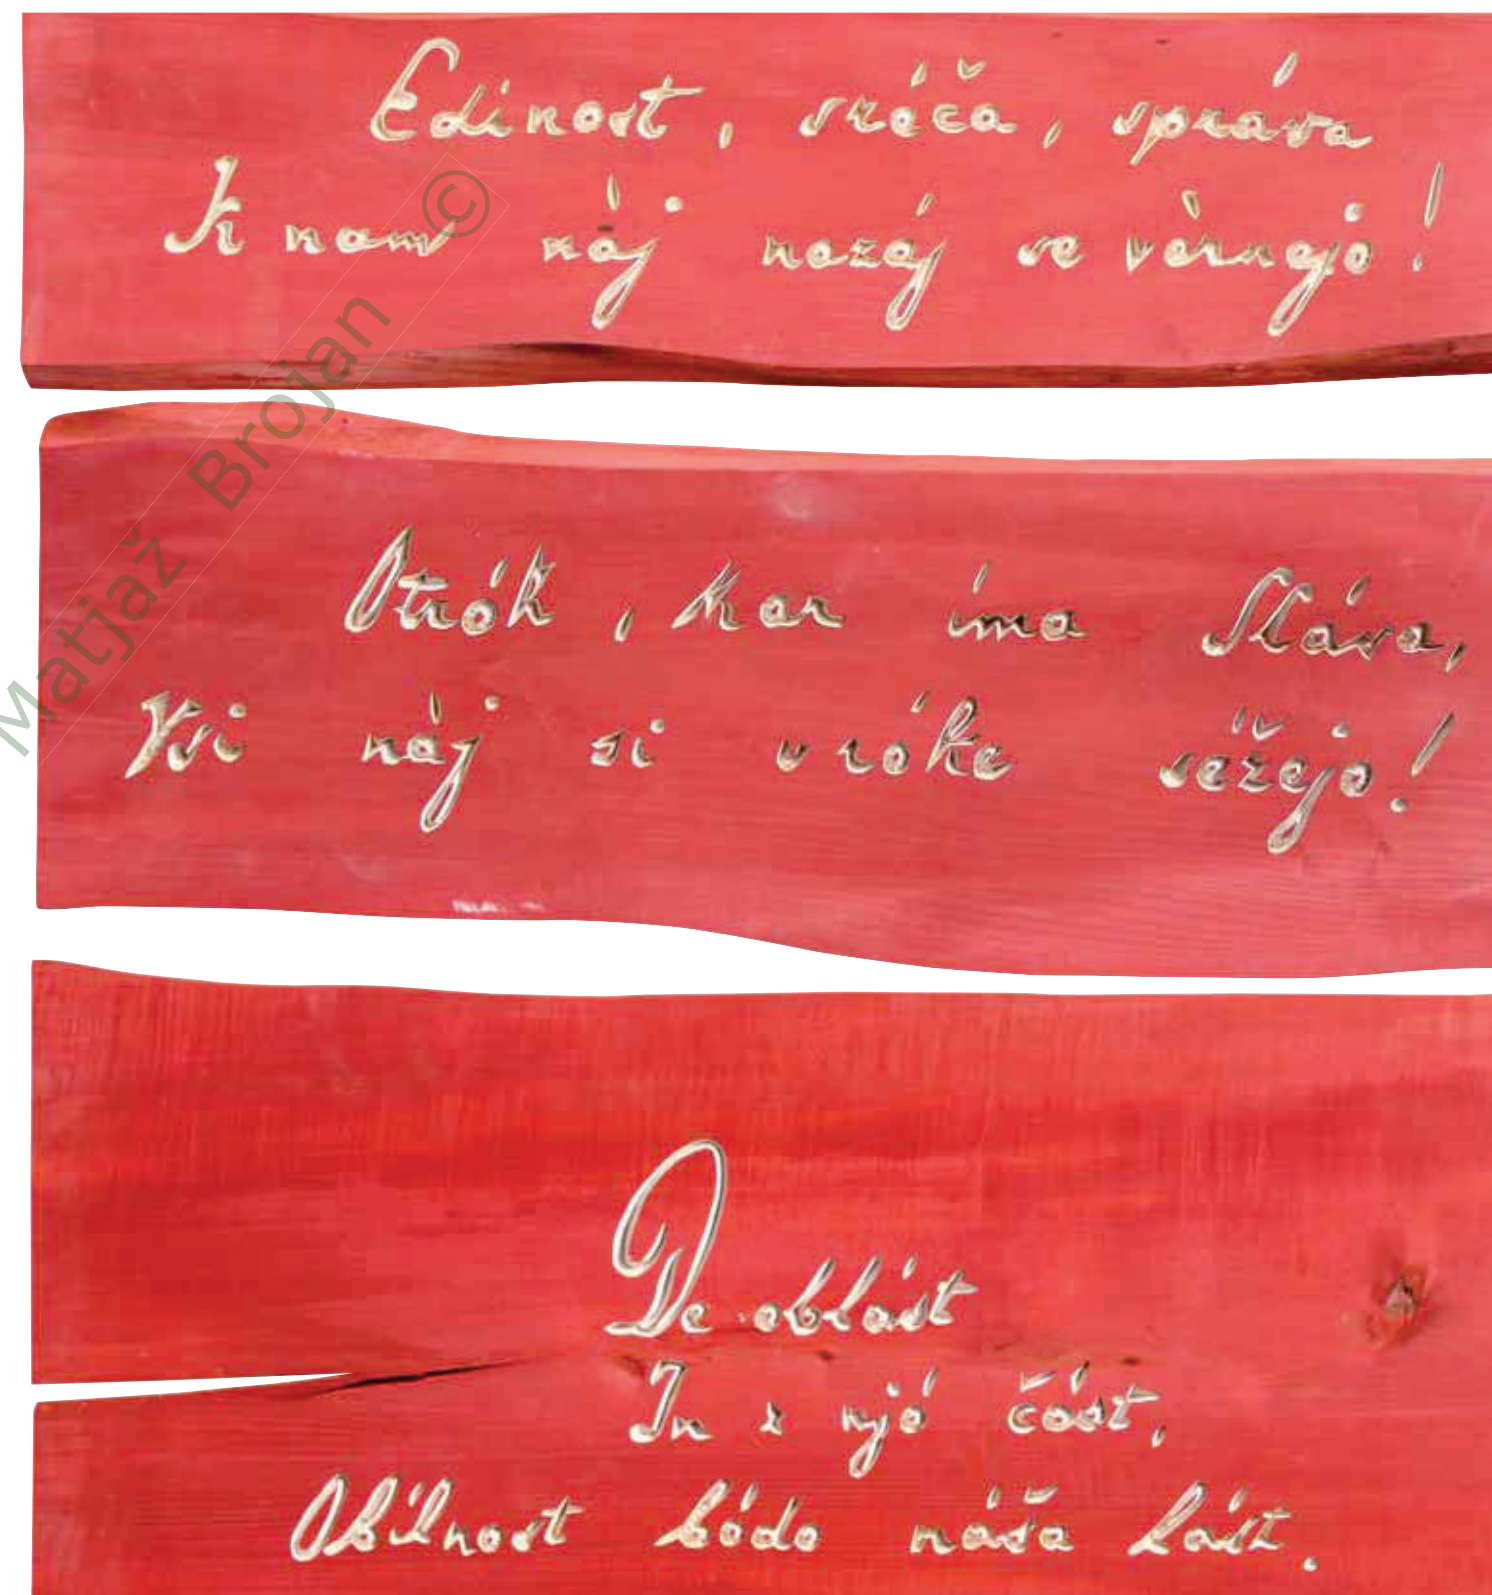 Edinost, sréča, správa
K nam nàj nazáj se vèrnejo!
Otrók, kar íma Sláva,
Vsi nàj si v róke séžejo!
De oblást
In z njó část,
Obílnost bódo náša lást.
Matjaž Brojan ©